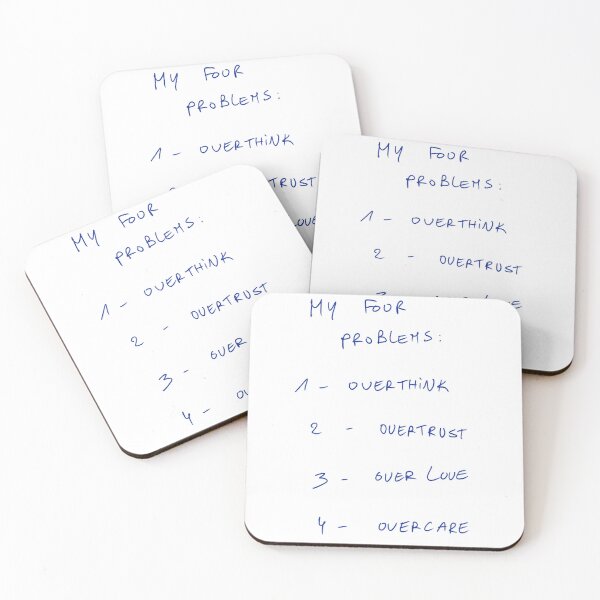 MY FOUR
PROBLEMS:
1 - OVERTHiNK
TRUST
MY FOUR
PROBLEMS:
1 - OVERTHiNK
2 - OVERTRUST
MY FOUR
PROBLEMS:
1 - OVERTHiNK
2 - OVERTRUST
3 - OVER
4 - OV
MY FOUR
PROBLEMS:
1 - OVERTHiNK
2 - OVERTRUST
3 - OVER LOVE
4 - OVERCARE